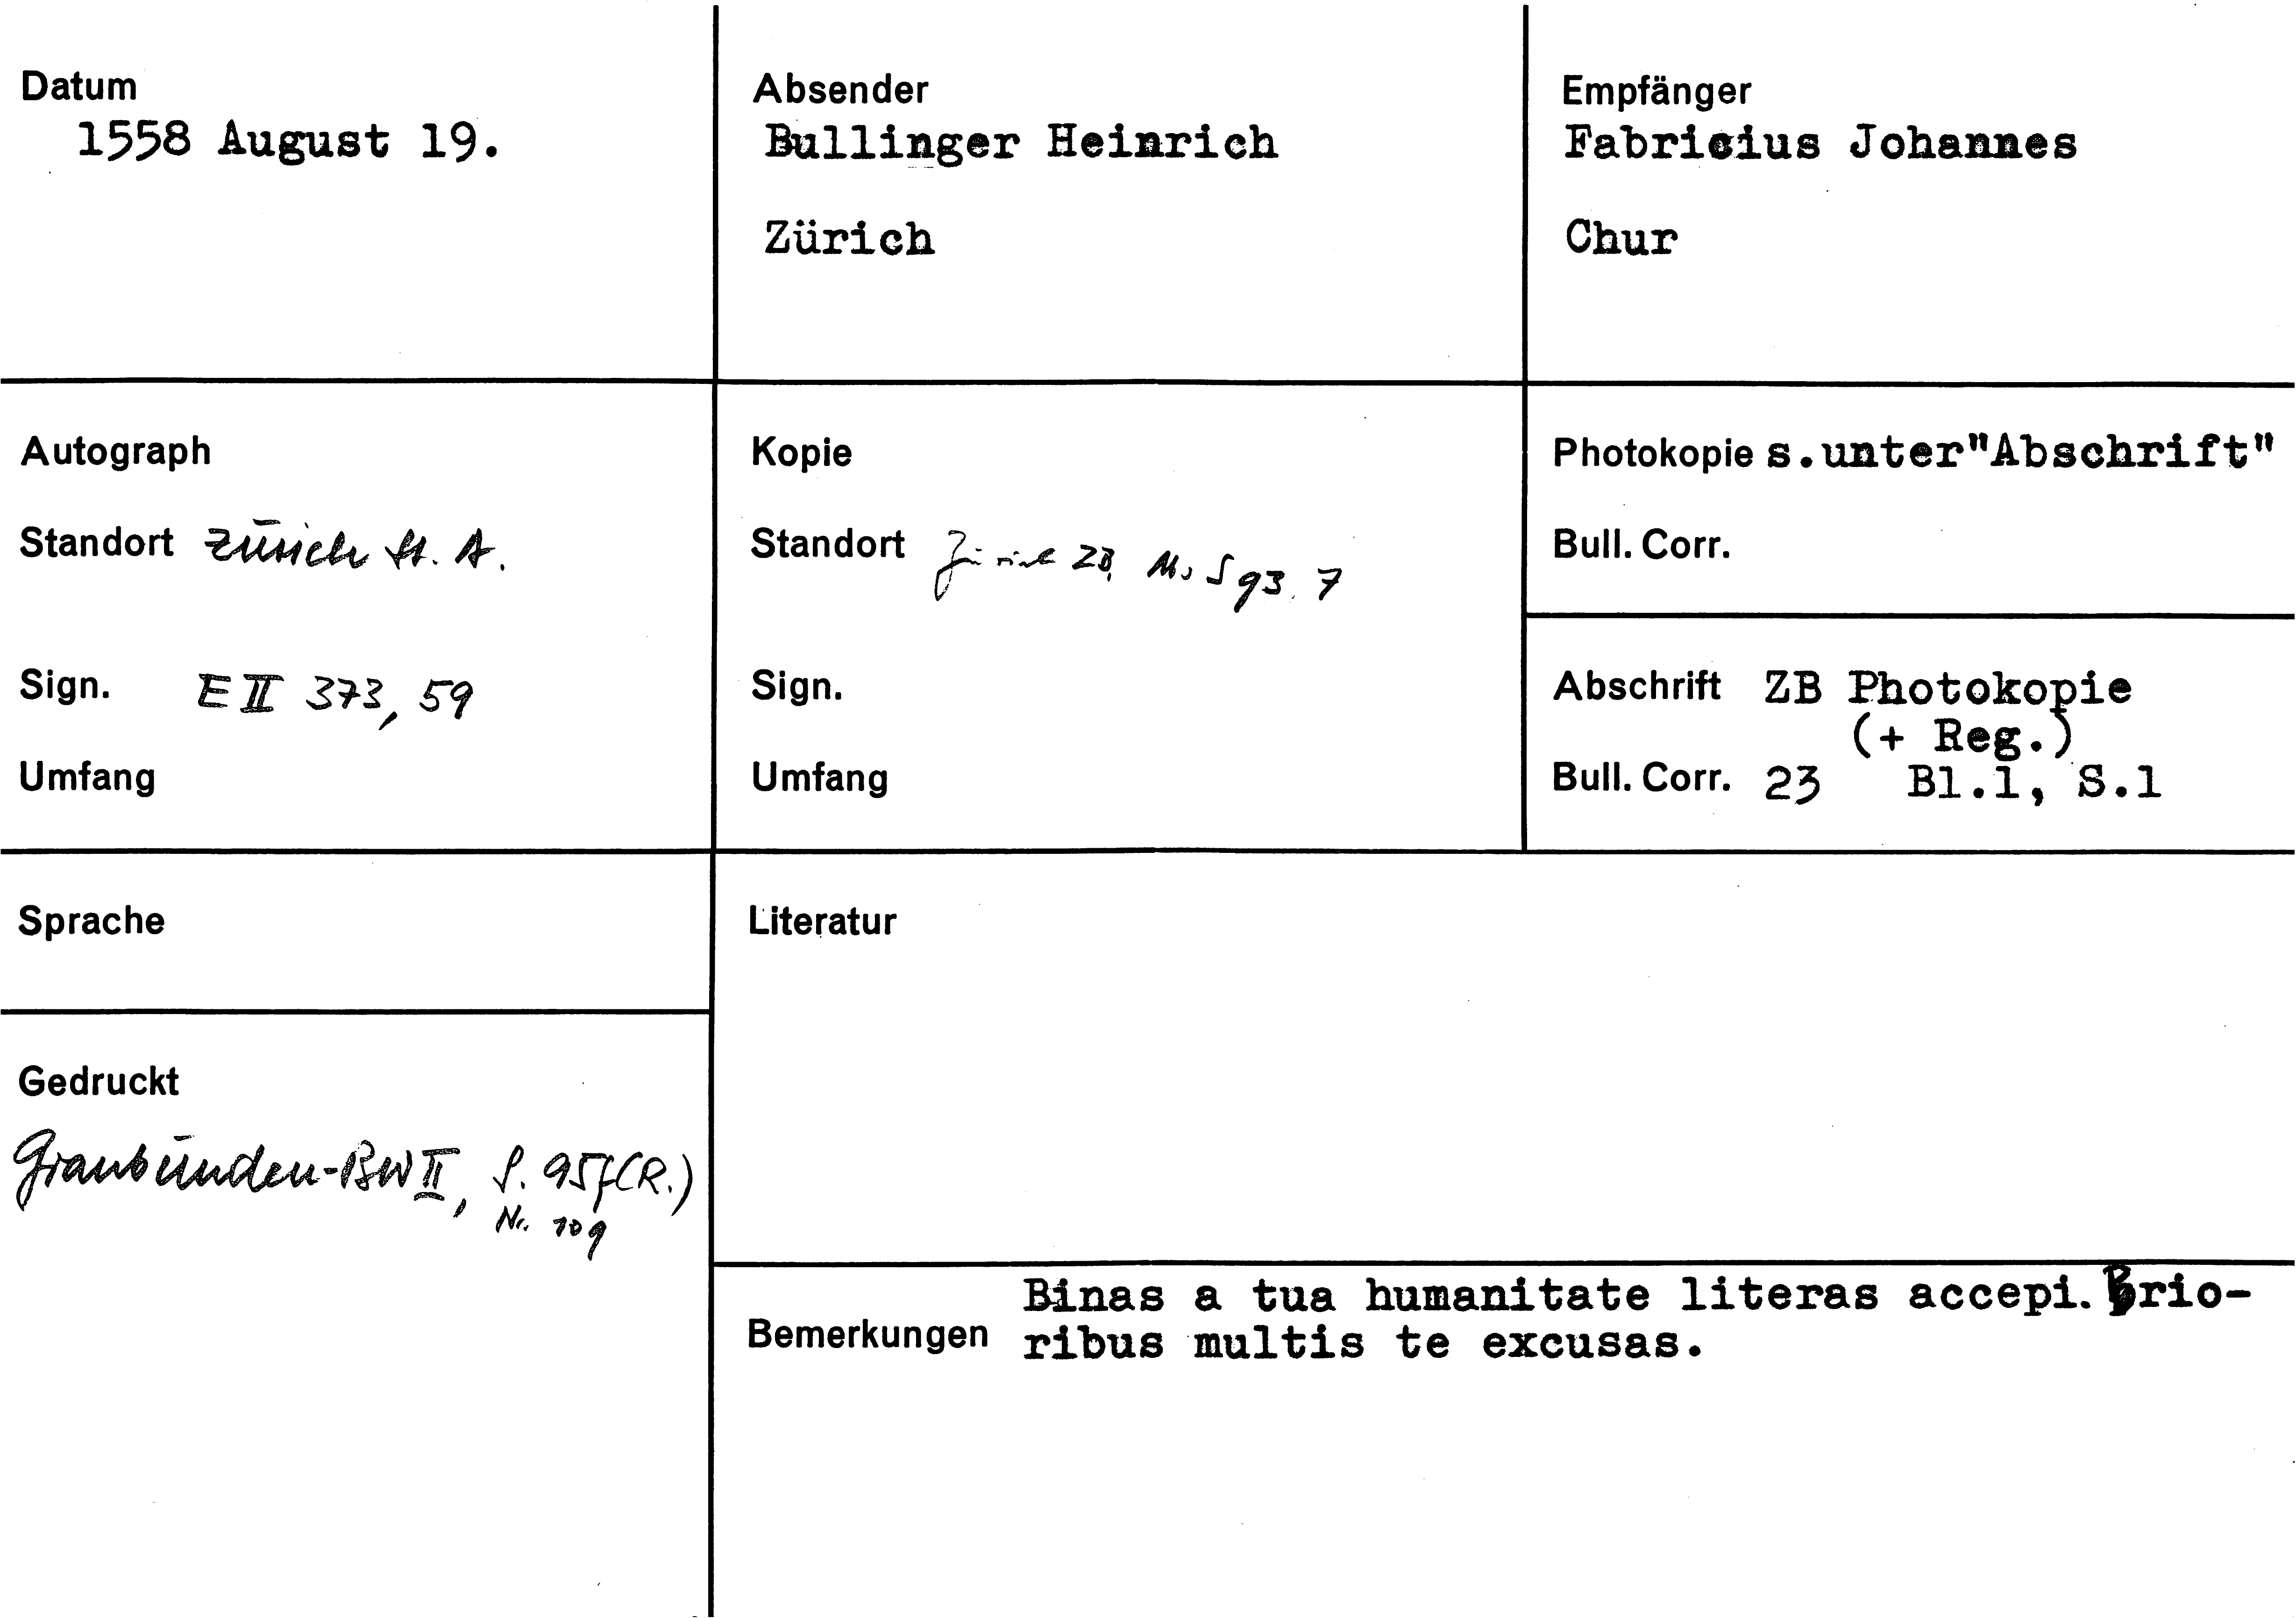 Datum
1558 August 19.
Absender
Bullinger Heinrich
Zürich
Empfänger
Fabricius Johannes
Chur
Autograph
Standort Zürich St. A.
Sign. E II 373, 59
Umfang
Kopie
Standort Zürich ZB, Ms S 93, 7
Sign.
Umfang
Photokopie s.unter"Abschrift"
Bull. Corr.
Abschrift ZB Photokopie
(+ Reg.)
Bull. Corr. 23 Bl.1, S.1
Sprache
Gedruckt
Graubünden-BW II, S. 95f(R.)
Nr. 109
Literatur
Bemerkungen
Binas a tua humanitate literas accepi. Prio-
ribus multis te excusas.